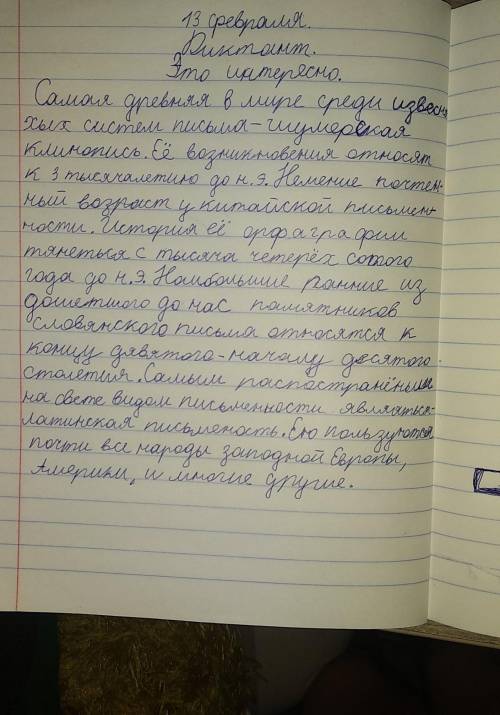 13 февраля.
Диктант.
Это интересно.
Самая древняя в мире среди извесн
ых систем письма – шумерская
клинопись. Её возникновения относят
к 3 тысячалетию до н.э. Немение почтен-
ный возраст у китайской письмен-
ности. История её орфаграфии
тянеться с тысяча четерёх сотого
года до н.э. Наибольшие ранние из
дошетшого до нас памятников
словянского письма относятся к
концу дявятого - началу десятого
столетия. Самым распостранёным
на свете видом письменности являться-
латинская письменость. Ею пользуются
почти все народы западной Европы,
Америки, и многие другие.